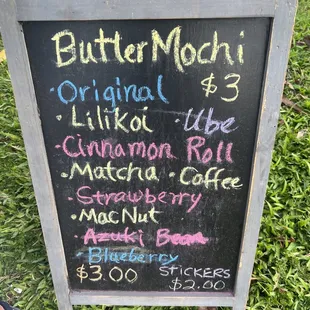 Butter Mochi
· Original $3
· Lilikoi · Ube
· Cinnamon Roll
· Matcha · Coffee
· Strawberry
· Mac Nut
· Azuki Bean
· Blueberry
$3.00 STICKERS
$2.00